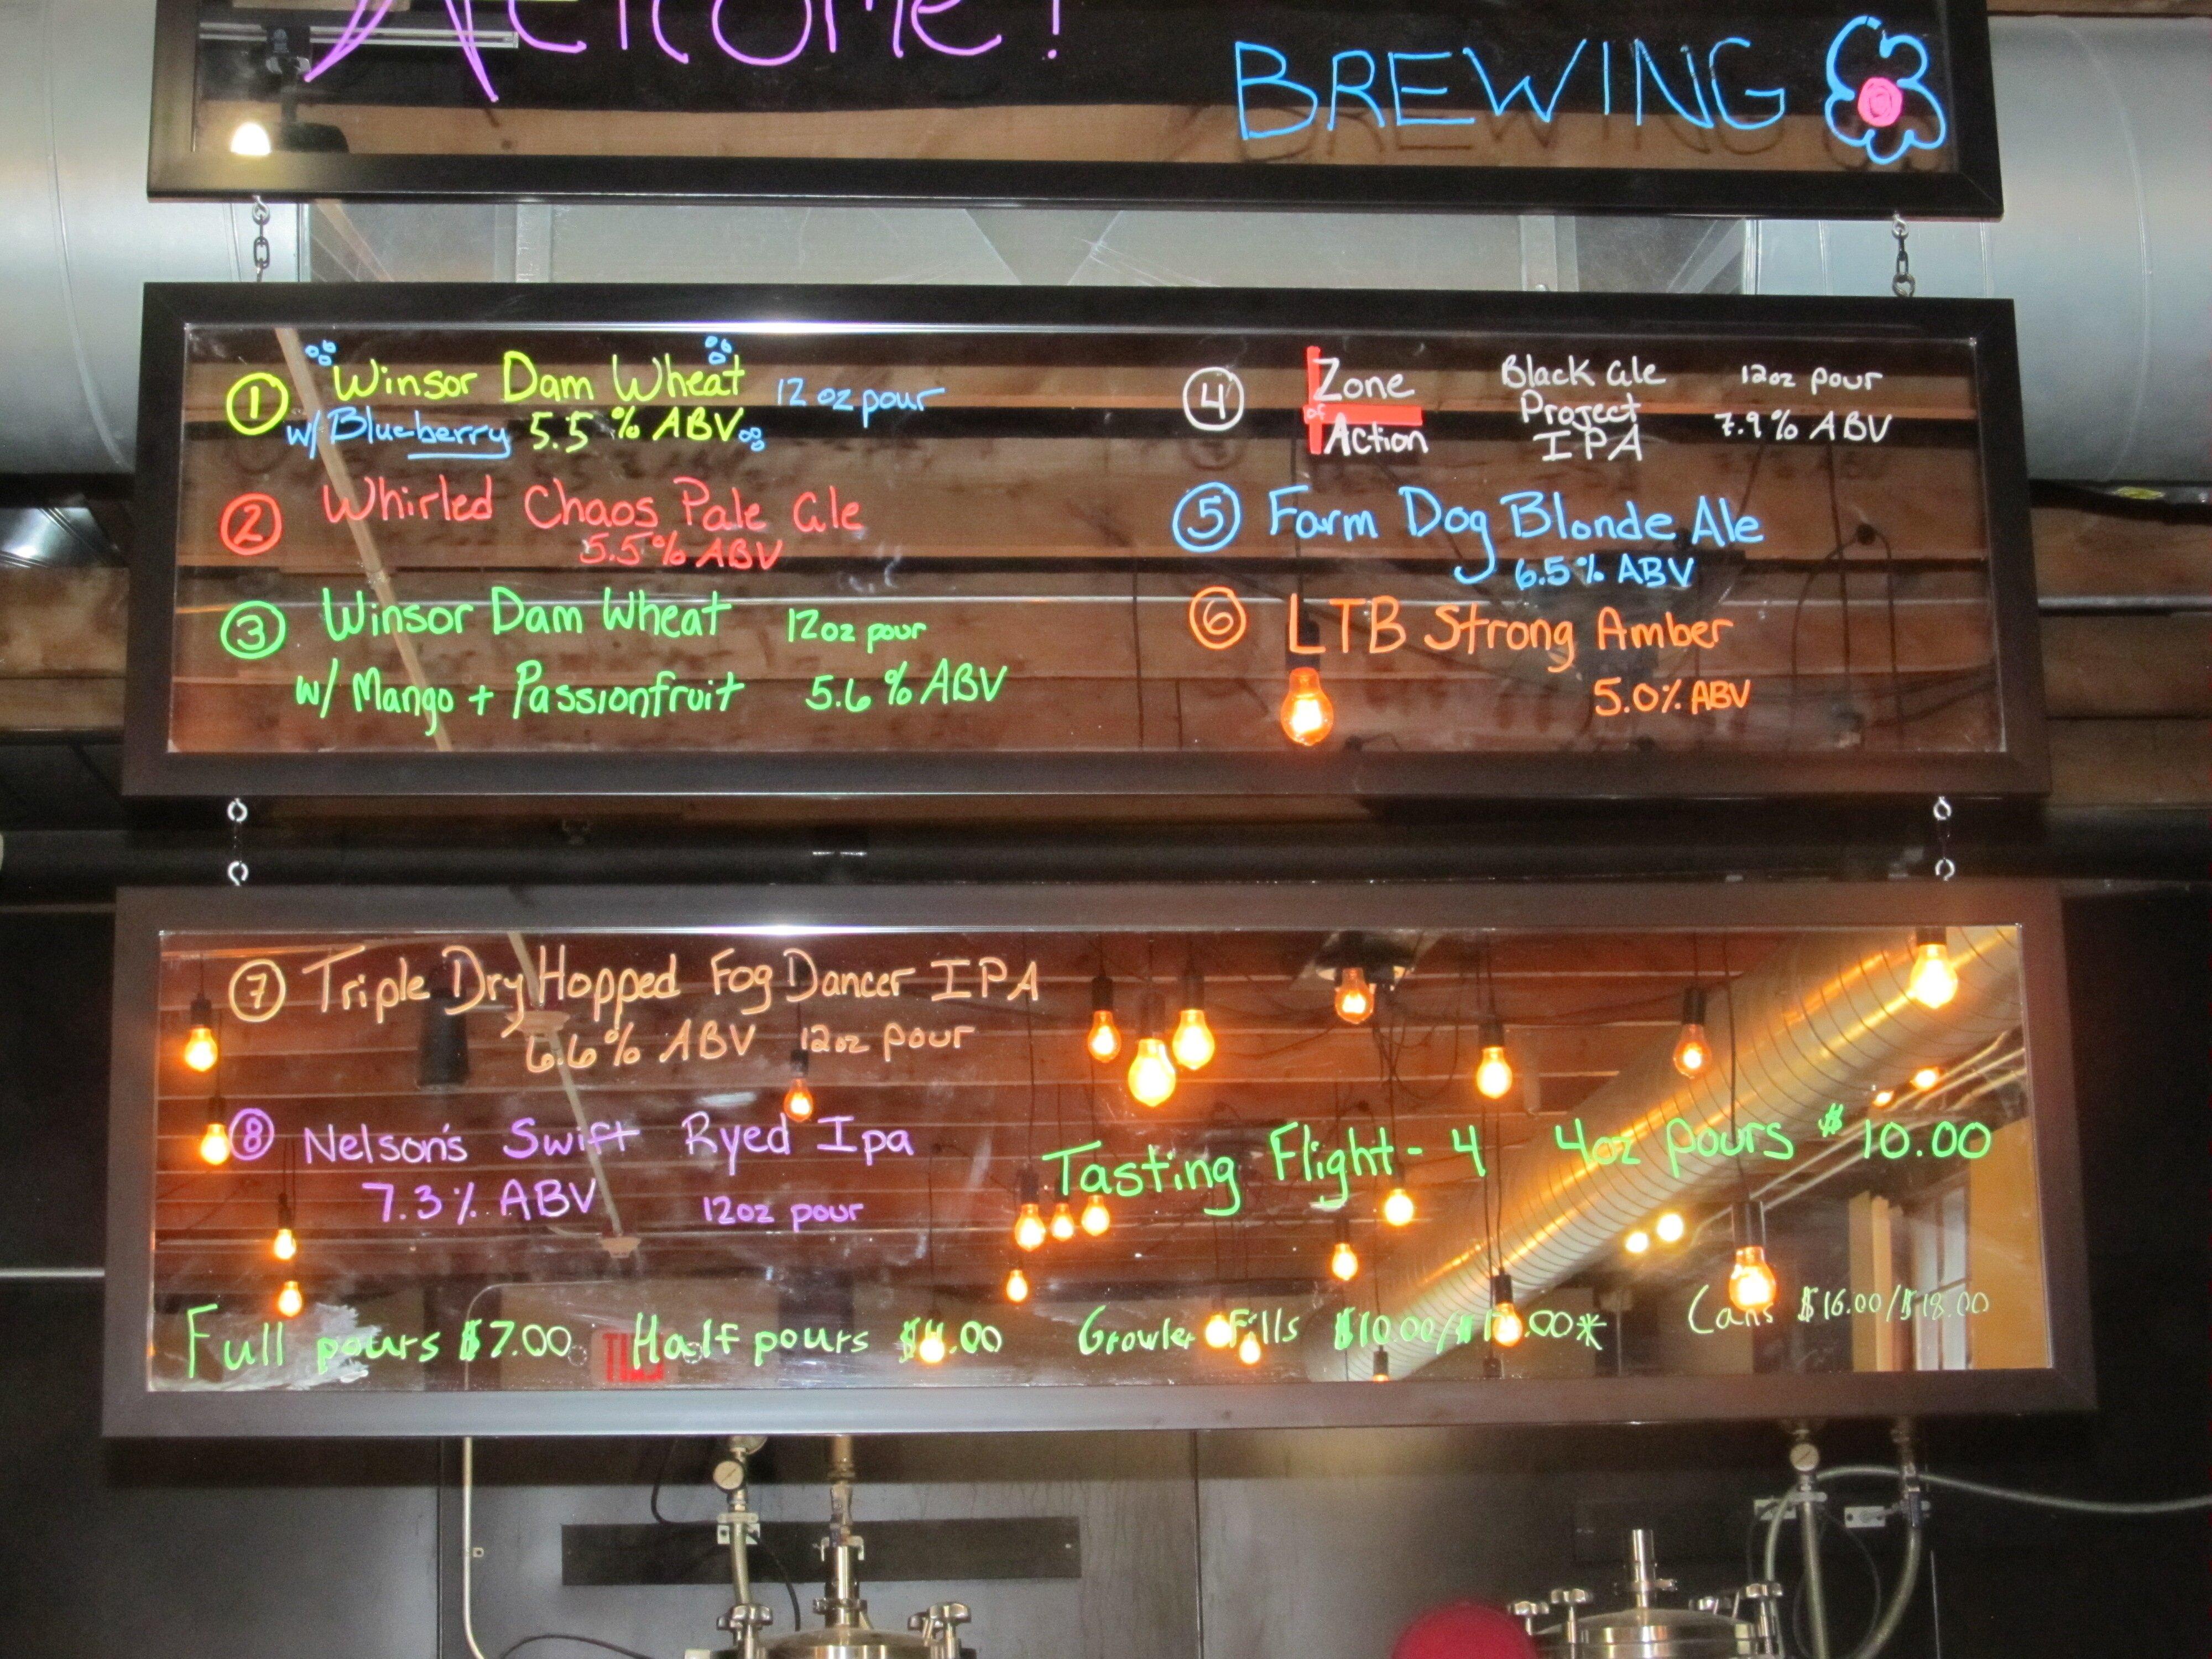 Welcome!
BREWING
1 Winsor Dam Wheat 12 oz pour
w/ Blueberry 5.5 % ABV
2 Whirled Chaos Pale Ale
5.5% ABV
3 Winsor Dam Wheat 12oz pour
w/ Mango + Passionfruit 5.6 % ABV
4 Zone of Action Black Ale Project IPA 12oz pour 7.9% ABV
5 Farm Dog Blonde Ale
6.5% ABV
6 LTB Strong Amber
5.0% ABV
7 Triple Dry Hopped Fog Dancer IPA
6.6% ABV 12oz pour
8 Nelson's Swift Ryed Ipa
7.3% ABV 12oz pour
Tasting Flight - 4 4oz pours $10.00
Full pours $7.00 Half pours Growler Fills Cans $16.00/$18.00